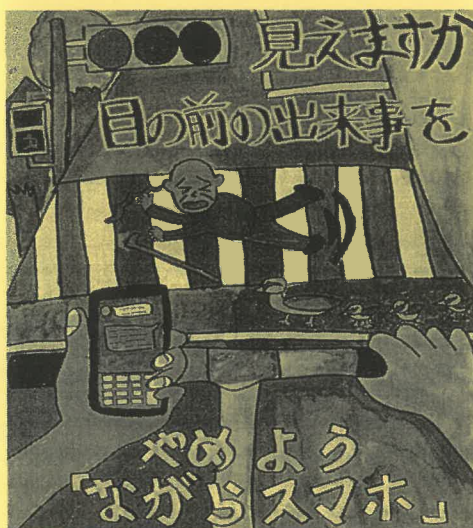 見えますか
目の前の出来事を
やめよう
「ながらスマホ」